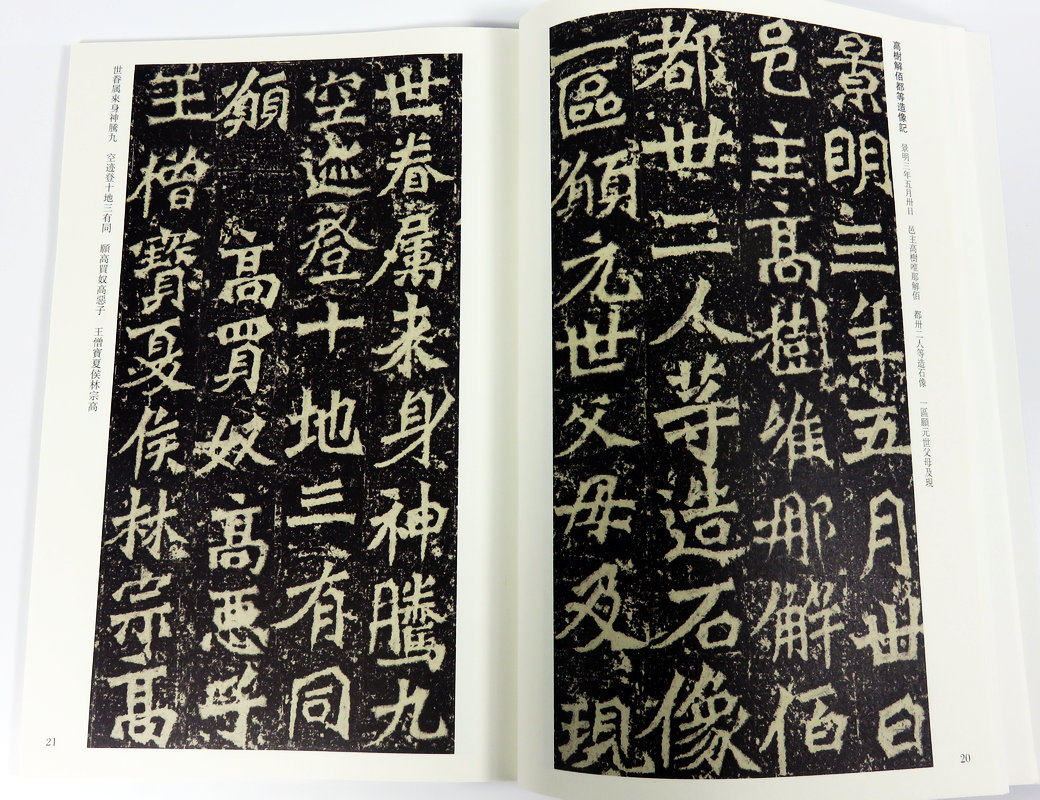 高樹解佰都等造像記 景明三年五月卅日 邑主高樹唯那解佰 都卅二人等造石像 一區願元世父母及現
景明三年五月卅日
邑主高樹唯那解佰
都卅二人等造石像
一區願元世父母及現
20
世眷属来身神騰九
空迹登十地三有同
願高買奴高惡子
王僧寶夏侯林宗高
世眷属來身神騰九 空迹登十地三有同 願高買奴高惡子 王僧寶夏侯林宗高
21